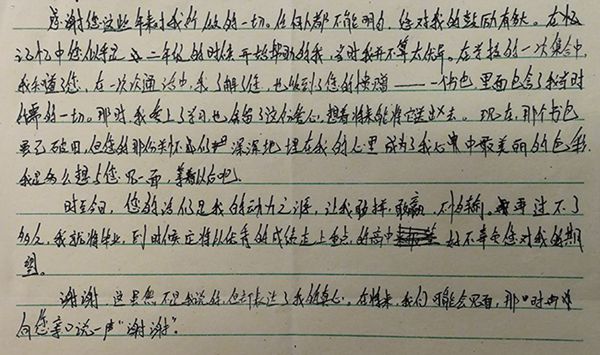 感谢您这些年来对我所做的一切。任何人都不能明白,您对我的鼓励有多大。在
记忆中您似乎是从二年级的时候开始帮助的我,当时我并不算太优异。在学校的一次集会中,
我知道了您,在一次次通话中,我了解了您,也收到了您的捐赠——一个书包,里面包含了我当时
的一切。那时,我爱上了学习也保留了这份爱心,想着将来能将它送出去。现在,那个书包
虽已破旧,但您的那份关怀深深地埋在我的心里成为了我心中最美丽的色彩,
我是多么想与您见一面,等着以后吧。
时至今日,您的话仍是我的动力之源,让我敢拼,敢赢,不服输。再过不了
多久,我就将毕业,到时候定将以优秀的成绩走上重点的高中好不辜负您对我的期
望。
谢谢,这里您不是我说的,但却表达了我的真心。在将来,我们可能会见面,那时
向您亲口说一声“谢谢”。